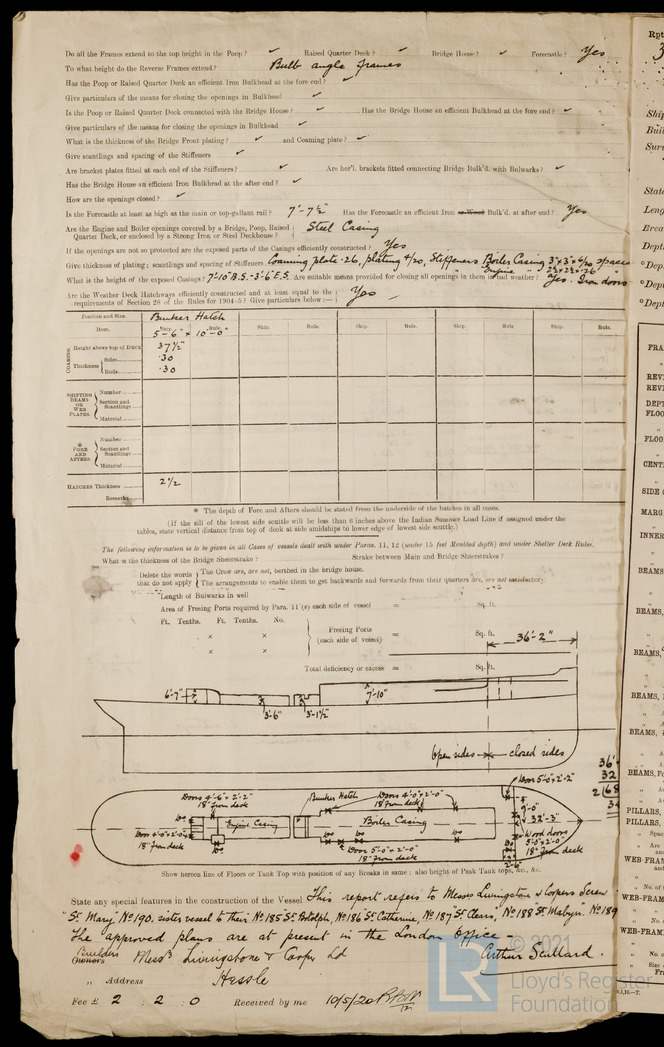 Do all the Frames extend to the top height in the Poop? ✓ Raised Quarter Deck? ✓ Bridge House? ✓ Forecastle? Yes
To what height do the Reverse Frames extend? Bulb angle frames
Has the Poop or Raised Quarter Deck an efficient Iron Bulkhead at the fore end? ✓
Give particulars of the means for closing the openings in Bulkhead ✓
Is the Poop or Raised Quarter Deck connected with the Bridge House? ✓ Has the Bridge House an efficient Bulkhead at the fore end? ✓
Give particulars of the means for closing the openings in Bulkhead ✓
What is the thickness of the Bridge Front plating? ✓ and Coaming plate? ✓
Give scantlings and spacing of the Stiffeners ✓
Are bracket plates fitted at each end of the Stiffeners? ✓ Are hor'l. brackets fitted connecting Bridge Bulk'd. with Bulwarks? ✓
Has the Bridge House an efficient Iron Bulkhead at the after end? ✓
How are the openings closed? ✓
Is the Forecastle at least as high as the main or top-gallant rail? 7'-7½" Has the Forecastle an efficient Iron or Wood Bulk'd. at after end? Yes
Are the Engine and Boiler openings covered by a Bridge, Poop, Raised Quarter Deck, or enclosed by a Strong Iron or Steel Deckhouse? Steel Casing
If the openings are not so protected are the exposed parts of the Casings efficiently constructed? Yes
Give thickness of plating; scantlings and spacing of Stiffeners Coaming plate .26, plating 4/20, Stiffeners Boiler Casing 3"x3"x6/20 spaced
Engine " 2½x2½x.26"
What is the height of the exposed Casings? 7'-10" B.S. - 3'-6" E.S. Are suitable means provided for closing all openings in them in bad weather? Yes. Iron doors
Are the Weather Deck Hatchways efficiently constructed and at least equal to the requirements of Section 28 of the Rules for 1904-5? Give particulars below:— Yes
Position and Size. Bunker Hatch
5'-6" x 10'-0"
Item. Ship. Rule. Ship. Rule. Ship. Rule. Ship. Rule. Ship. Rule.
COAMING Height above top of DECK 37½"
Thickness Sides .30
Ends .30
SHIFTING BEAMS OR WEB PLATES. Number
Section and Scantlings
Material
* FORE AND AFTERS. Number
Section and Scantlings
Material
HATCHES Thickness 2½
Remarks
* The depth of Fore and Afters should be stated from the underside of the hatches in all cases.
(If the sill of the lowest side scuttle will be less than 6 inches above the Indian Summer Load Line if assigned under the
tables, state vertical distance from top of deck at side amidships to lower edge of lowest side scuttle.)
The following information is to be given in all Cases of vessels dealt with under Paras. 11, 12 (under 15 feet Moulded depth) and under Shelter Deck Rules.
What is the thickness of the Bridge Sheerstrake? Strake between Main and Bridge Sheerstrakes?
Delete the words that do apply { The Crew are, are not, berthed in the bridge house.
The arrangements to enable them to get backwards and forwards from their quarters are, are not satisfactory.
Length of Bulwarks in well
Area of Freeing Ports required by Para. 11 (e) each side of vessel = Sq. ft.
Ft. Tenths. Ft. Tenths. No.
x x
x x
Freeing Ports (each side of vessel) = Sq. ft.
Total deficiency or excess = Sq. ft.
36'-2"
6'-7"
3'-6"
3'-1½"
7'-10"
Open sides closed sides
Doors 4'-6"x2'-2"
18" from deck
Bunker Hatch
Doors 4'-0"x2'-0"
18" from deck
Door 5'-0"x2'-2"
Engine Casing
Boiler Casing
9'-0"
32'-3"
Door 4'-0"x2'-0"
18" from deck
Door 5'-0"x2'-0"
18" from deck
Wood doors
5'-0"x2'-0"
18" from deck
2'-6"
Show hereon line of Floors or Tank Top with position of any Breaks in same; also height of Peak Tank tops, &c., &c.
State any special features in the construction of the Vessel This report refers to Messrs Livingstone & Coopers Screw
"St. Mary" No 190. sister vessel to their No 185 "St Botolph, No 186 St. Catherine, No 187 "St. Clears", No 188 "St. Mabyn". No 189
The approved plans are at present in the London Office -
Builders Owners Messrs Livingstone & Cooper Ld Arthur Scullard.
" Address Hessle
Fee £ 2 : 2 : 0 Received by me 10/5/20
© 2021
Lloyd's Register
Foundation
36'
32
2 68
34
Rpt
3
Ship
Buil
Surv
State
Leng
Brea
Dept
°Dep
°Dep
°Dept
FRA
REV
REVI
DEPT
FLOO
FLOO
CENT
SIDE
MARG
INNER
BEAMS
BEAMS,
BEAMS,
BEAMS
BEAMS,
BEAMS,
PILLARS,
PILLARS,
WEB-FRA
WEB-FRAM
WEB-FRAM